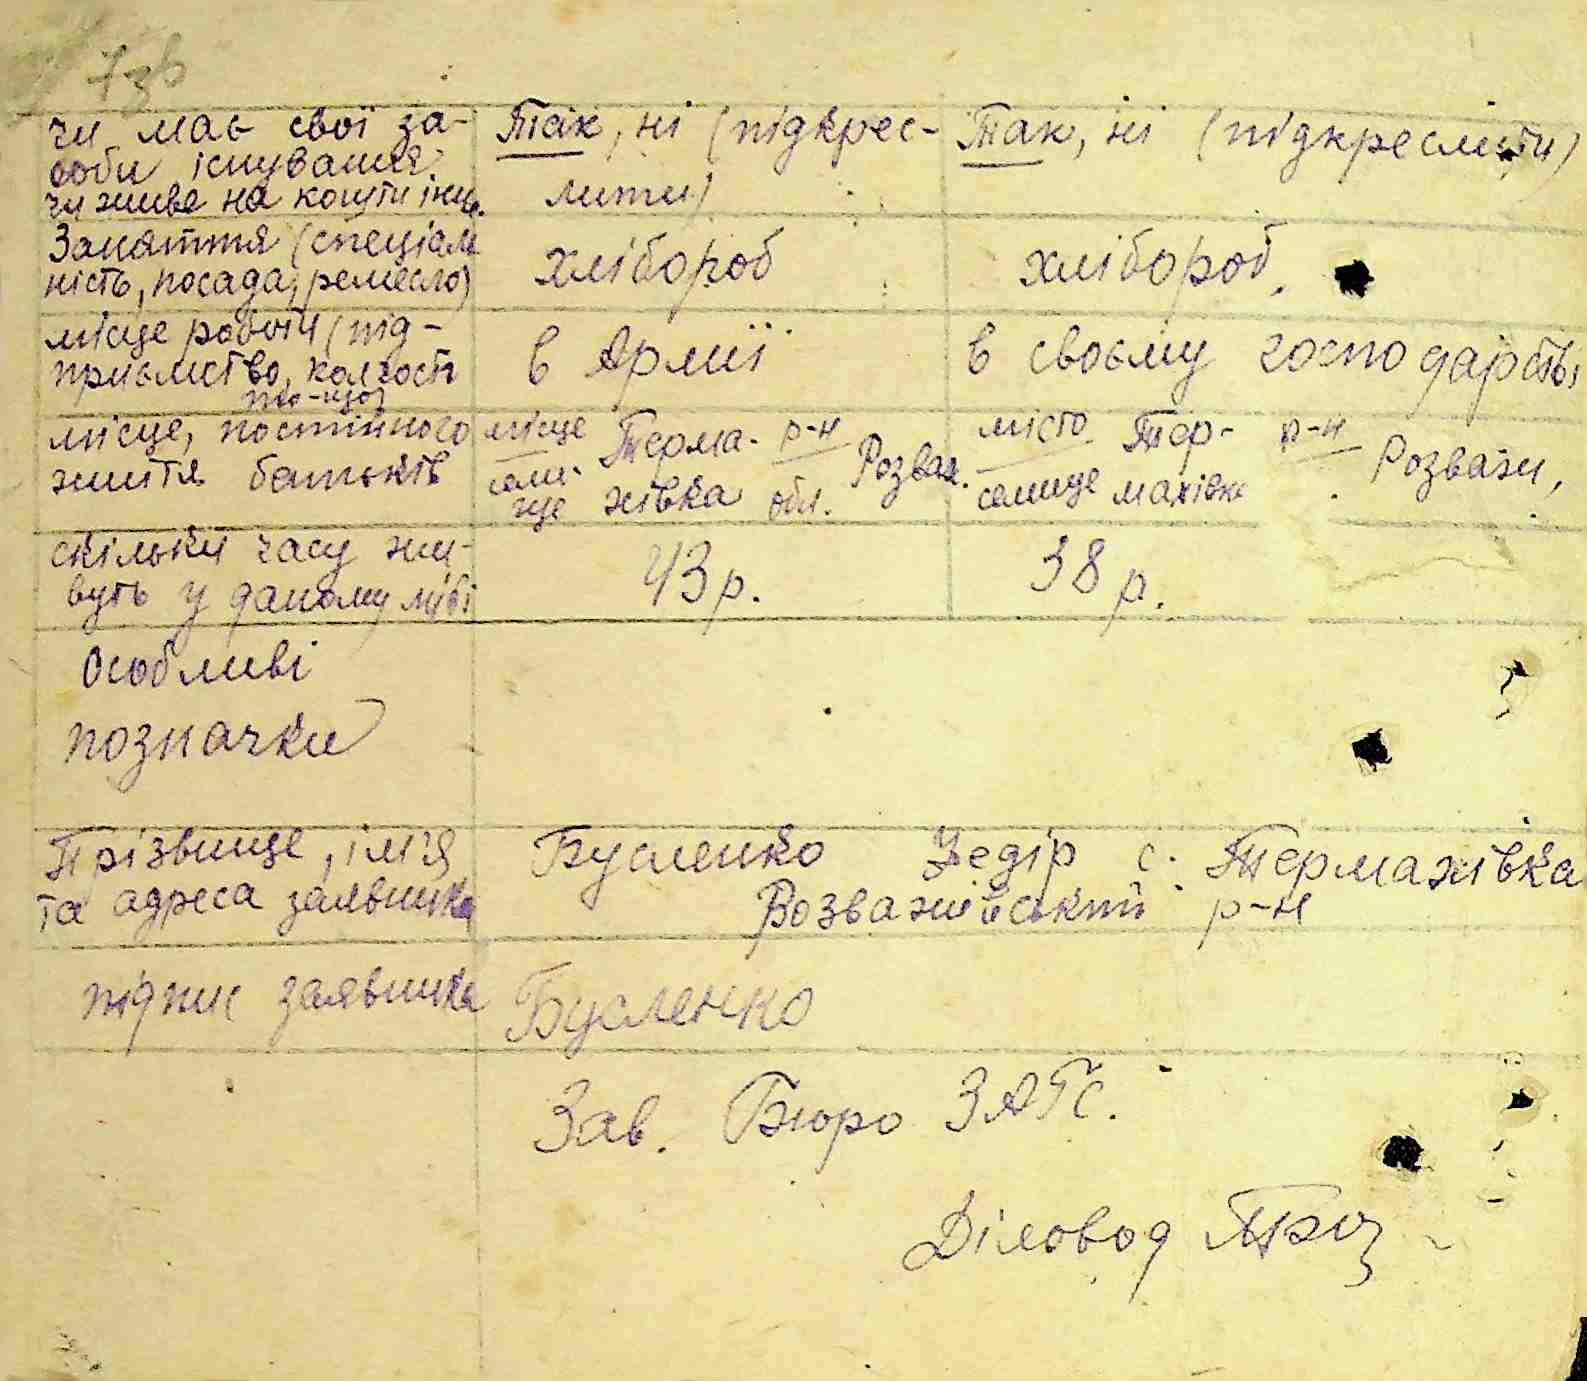 7зв
чи має свої за-
соби існування
чи живе на кошти інш.
Так, ні (підкрес-
лити)
Так, ні (підкреслити)
Заняття (спеціаль
ність, посада, ремесло)
хлібороб
хлібороб.
місце роботи (під-
приємство, колгосп
що-що)
в Армії
в своєму господарстві
місце, постійного
життя батьків
місце Терма- р-н Розваж.
сели-
ще жівка обл.
місто Тер- р-н Розважи,
селище махівка
скільки часу жи-
вуть у даному місті
43 р.
38 р.
Особливі
позначки
Прізвище, ім'я
та адреса заявника
Бусленко Федір с. Термахівка
Розважійський р-н
підпис заявника
Бусленко
Зав. Бюро ЗАГС.
Діловод